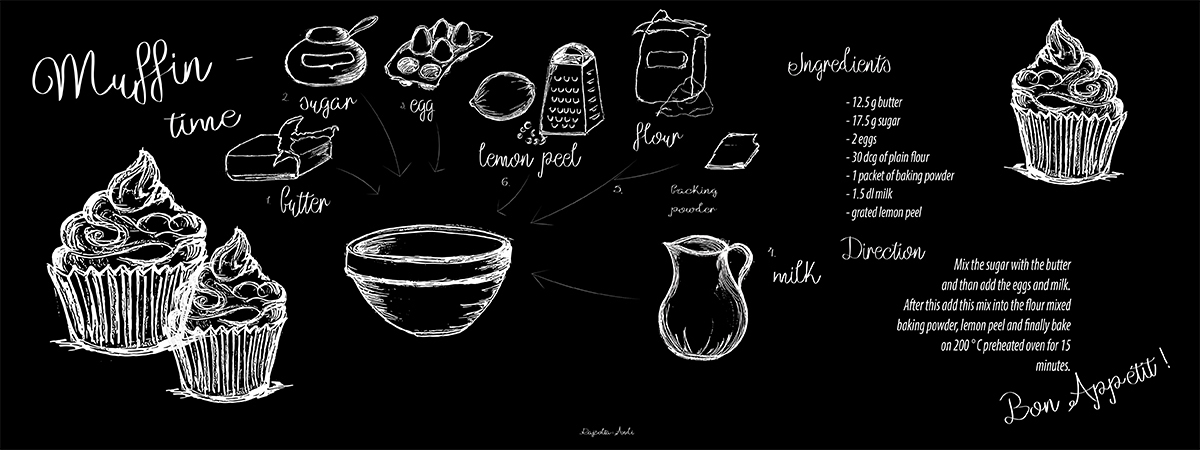 Muffin -
time
2. sugar
3. egg
lemon peel
6.
flour
5.
backing
powder
1. butter
4. milk
Ingredients
- 12.5 g butter
- 17.5 g sugar
- 2 eggs
- 30 dcg of plain flour
- 1 packet of baking powder
- 1.5 dl milk
- grated lemon peel
Direction
Mix the sugar with the butter
and than add the eggs and milk.
After this add this mix into the flour mixed
baking powder, lemon peel and finally bake
on 200 ° C preheated oven for 15
minutes.
Bon Appétit !